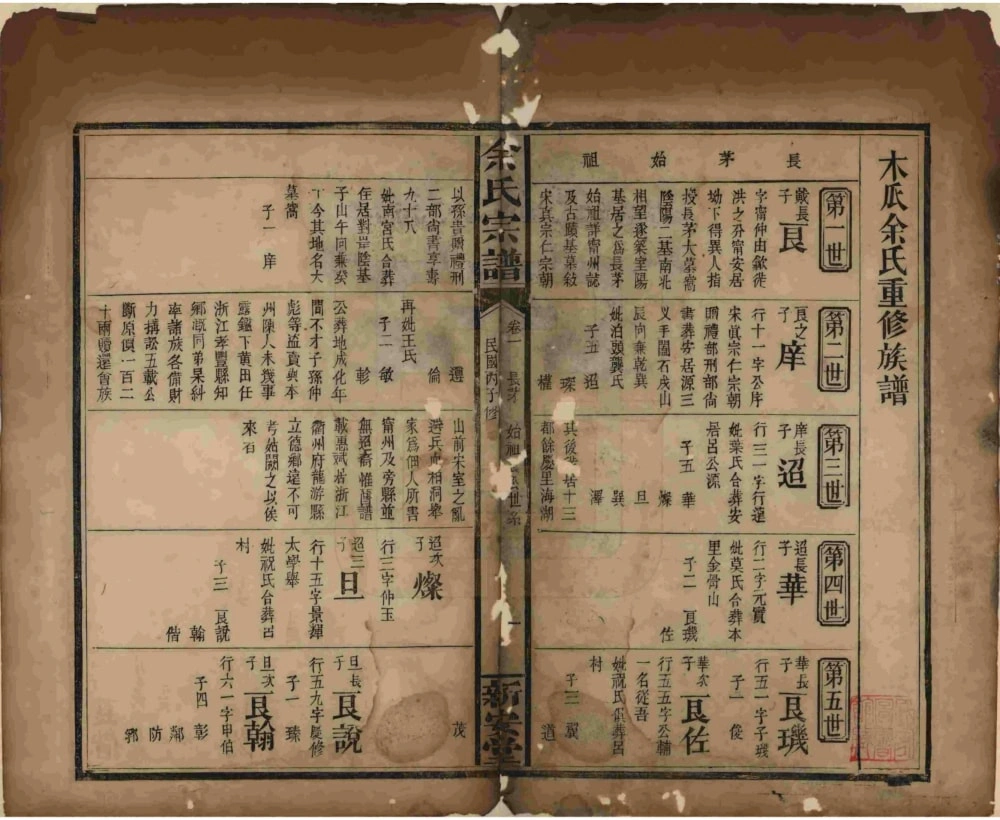 木瓜余氏重修族譜
長茅始祖
第一世
戩長子
良
字甯仲由歙徙
洪之分甯安居
坳下得異人指
授長茅大墓窩
陰陽二基南北
相望遂築室陽
基居之為長茅
始祖詳甯州誌
及古蹟基墓敘
宋真宗仁宗朝
以孫貴贈禮刑
二部尚書享壽
九十八
妣南宮氏合葬
在居對岸陰基
子山午向兼癸
丁今其地名大
墓窩
子一 庠
第二世
良之子
庠
行十一字公序
宋眞宗仁宗朝
贈禮部刑部尚
書葬安居源三
叉手團石戍山
辰向兼乾巽
妣泊頭龔氏
子五 迢
璨
權
再妣王氏
子二 敏
彰
公葬地成化年
間不才子孫仲
彪等盜賣與本
州陳人未幾事
露鑑下黄田任
浙江孝豐縣知
鄉識同弟杲糾
率諸族各備財
力搆訟五載公
斷原價一百二
十兩贖還會族
第三世
庠長子
迢
行三一字行達
妣葉氏合葬安
居呂公源
子五 華
燦
旦
巽
澤
其後遷居十三
都餘慶里海湖
山前宋室之亂
避兵虎相洞舉
家爲佃人所害
甯州及旁縣並
無迢裔惟舊譜
載惠斌居浙江
衢州府龍游縣
立德鄉遠不可
考姑闕之以俟
來者
第四世
迢長子
華
行二字元實
妣莫氏合葬本
里金骨山
子二 良璣
佐
迢次子
燦
行三字仲玉
迢三子
旦
行十五字景輝
太學舉
妣祝氏合葬呂
村
子三 良說
翰
偕
第五世
華長子
良璣
行五一字子璣
子一 俊
華次子
良佐
行五五字公輔
一名從吾
妣祝氏俱葬呂
村
子三 翼
道
茂
旦長子
良說
行五九字慶修
子一 臻
旦次子
良翰
行六一字甲伯
子四 彭
鄰
防
郛
余氏宗譜
卷一
長茅
民國丙子修
一
新安堂